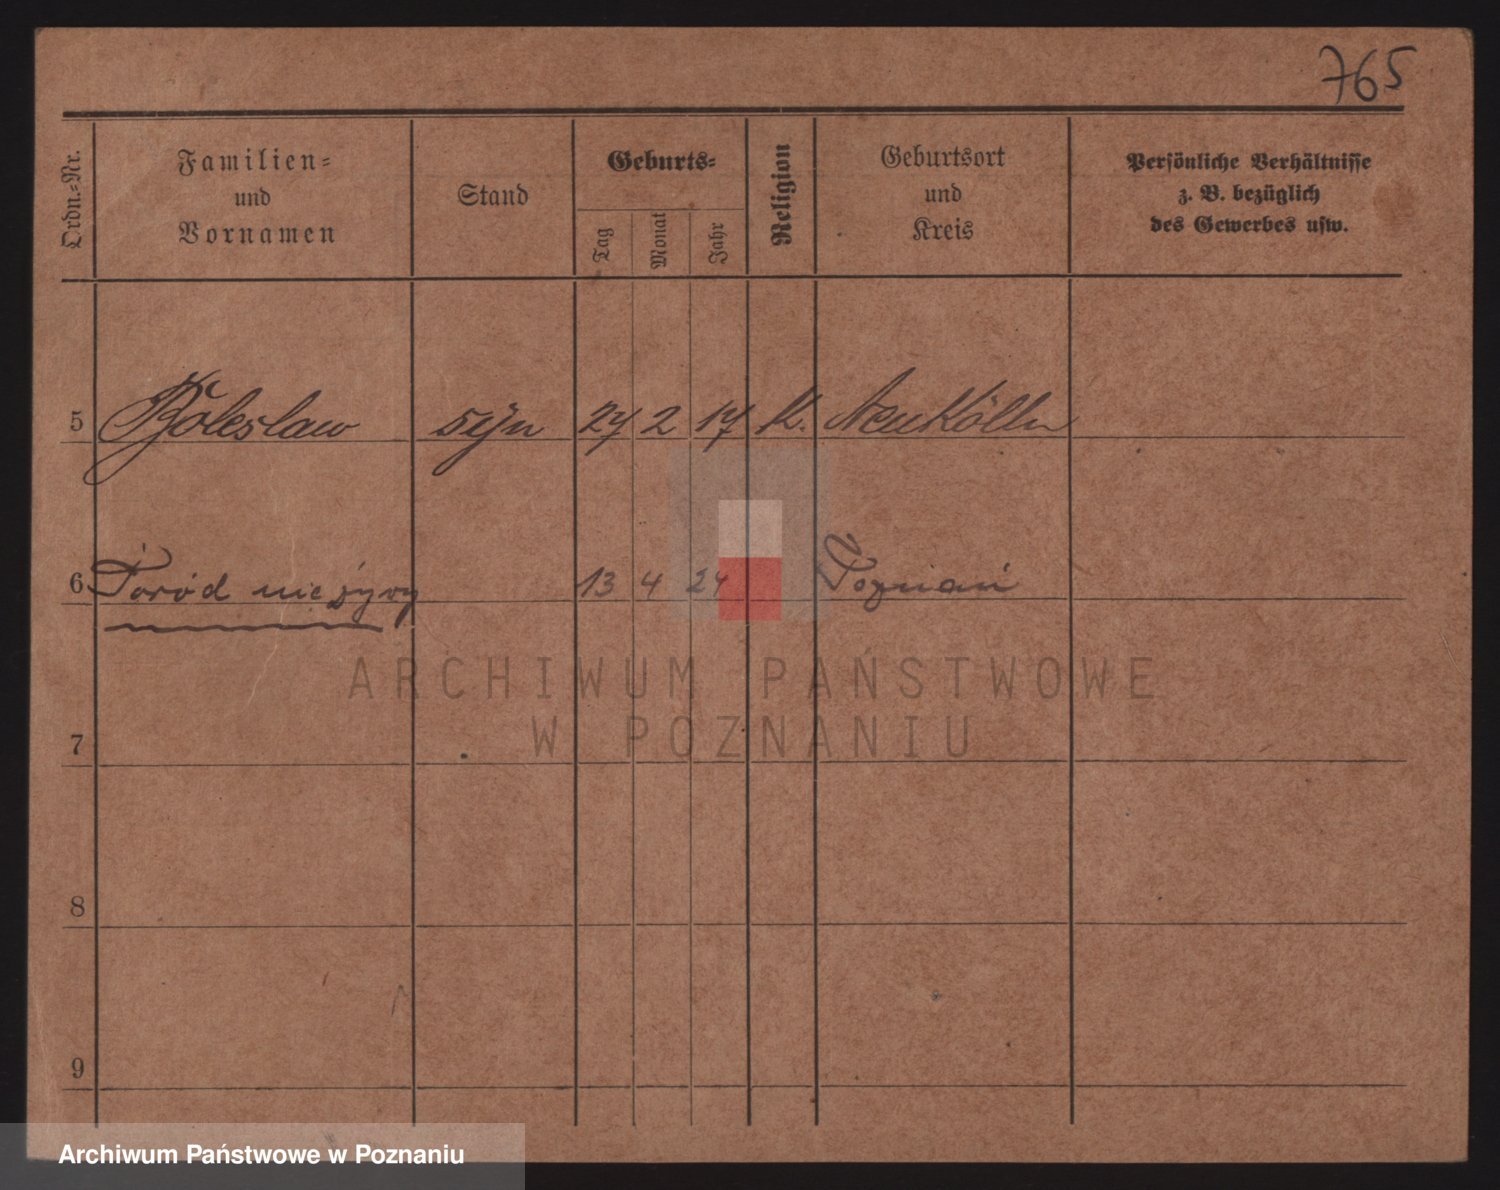 765
Ordn.-Nr.
Familien-
und
Vornamen
Stand
Geburts-
Tag
Monat
Jahr
Religion
Geburtsort
und
Kreis
Persönliche Verhältnisse
z. B. bezüglich
des Gewerbes usw.
5 Boleslaw syn 27 2 17 K. Neukölln
6 Poród nieżywy 13 4 24 Poznań
ARCHIWUM PAŃSTWOWE
W POZNANIU
7
8
9
Archiwum Państwowe w Poznaniu